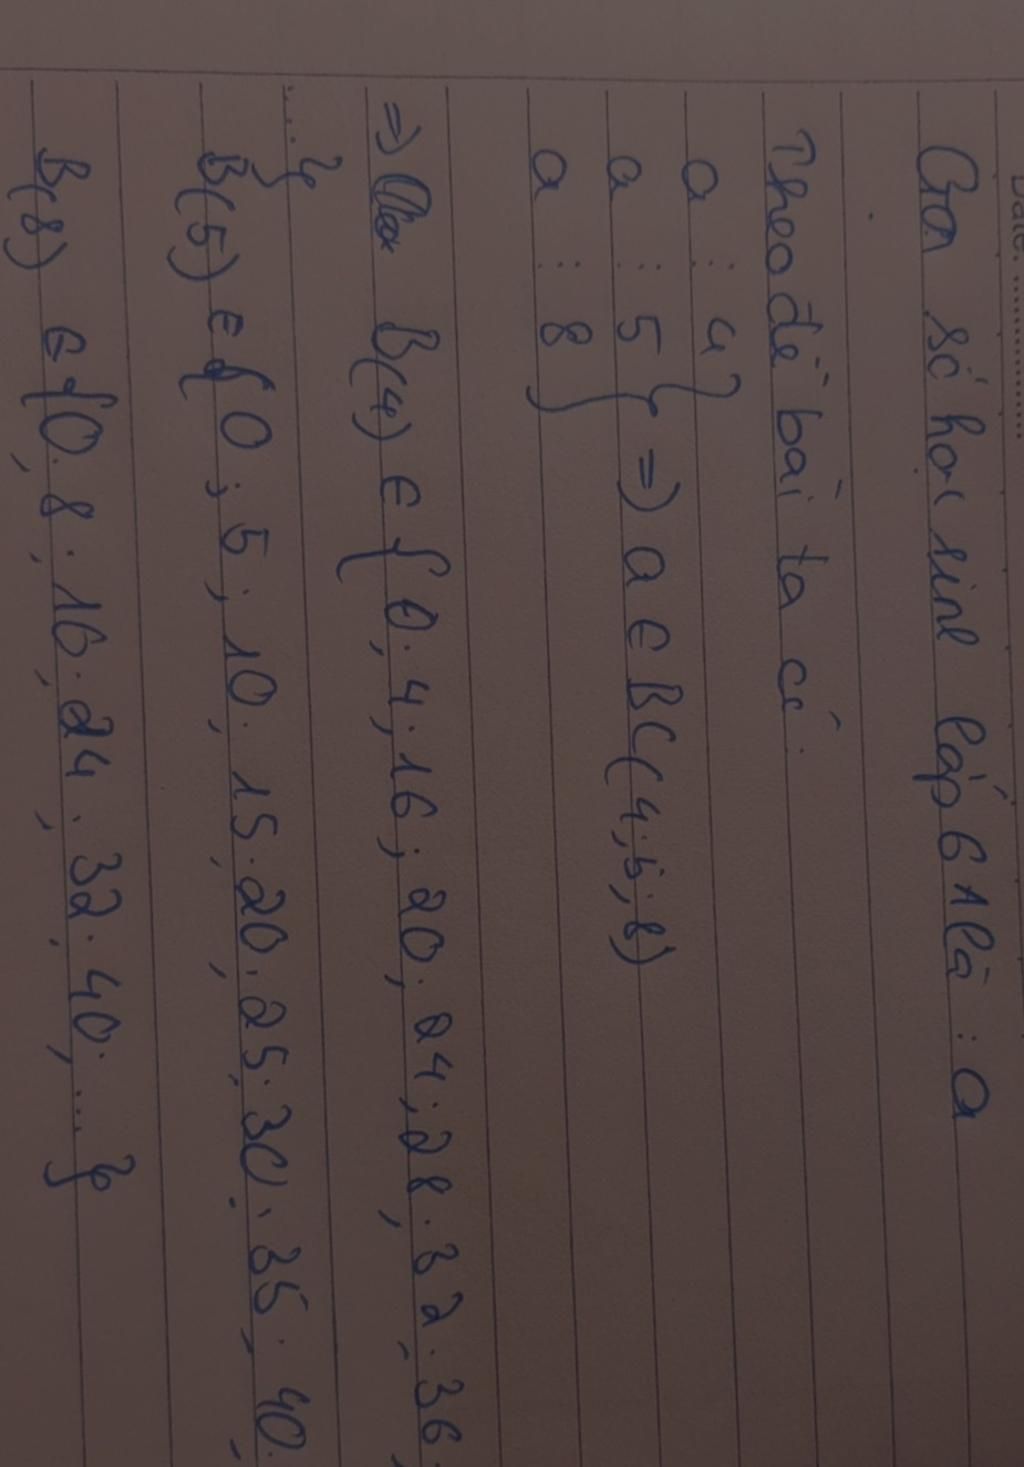 Date: ............
Gọi số học sinh lớp 6A là : a
Theo đề bài ta có:
a ⋮ 4
a ⋮ 5 } => a ∈ BC(4;5;8)
a ⋮ 8
=> B(4) ∈ { 0; 4; 16; 20; 24; 28; 32; 36;
...}
B(5) ∈ { 0; 5; 10; 15; 20; 25; 30; 35; 40;
B(8) ∈ {0; 8; 16; 24; 32; 40; ... }